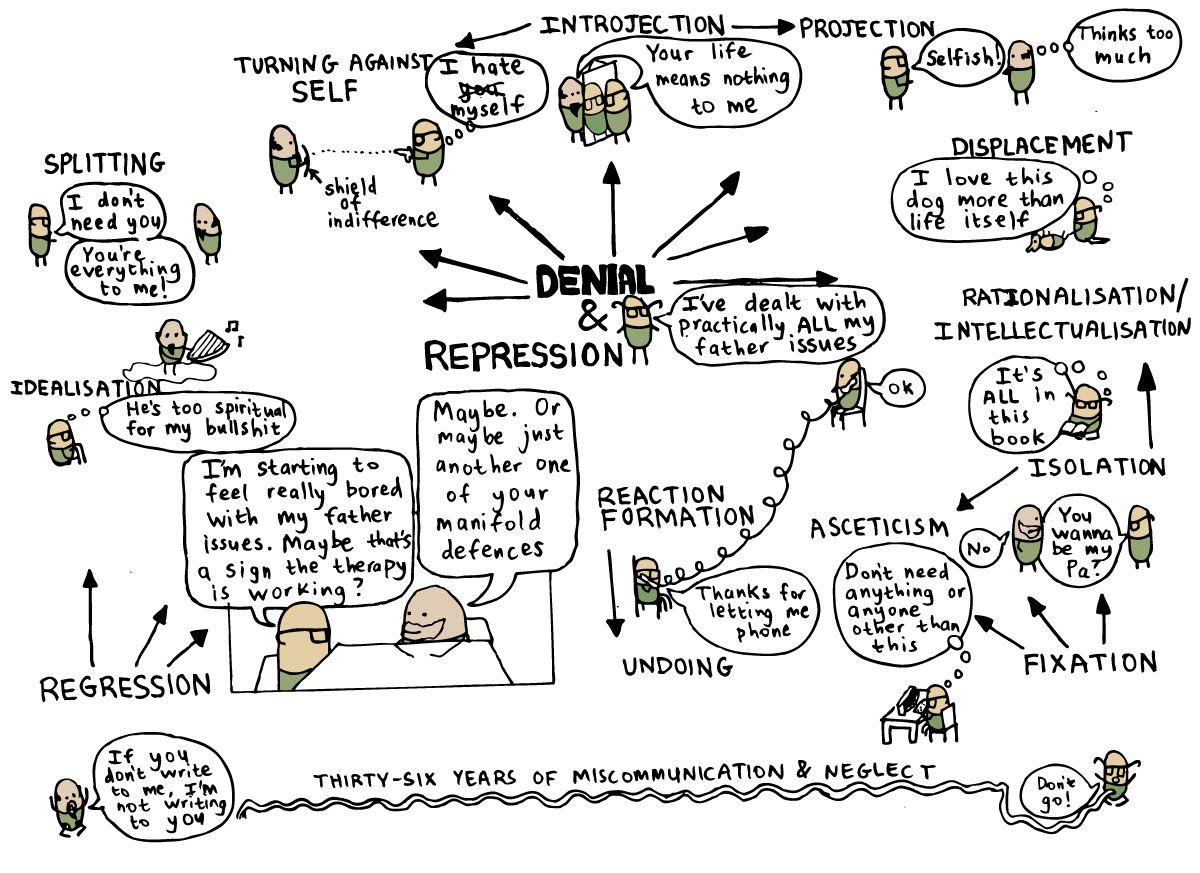 INTROJECTION
PROJECTION
TURNING AGAINST
SELF
I hate
you
myself
Your life
means nothing
to me
Selfish!
Thinks too
much
SPLITTING
I don't
need you
You're
everything
to me!
shield
of
indifference
DISPLACEMENT
I love this
dog more than
life itself
DENIAL
&
REPRESSION
I've dealt with
practically ALL my
father issues
RATIONALISATION/
INTELLECTUALISATION
It's
ALL in
this
book
OK
IDEALISATION
He's too spiritual
for my bullshit
I'm starting to
feel really bored
with my father
issues. Maybe that's
a sign the therapy
is working?
Maybe. Or
maybe just
another one
of your
manifold
defences
REACTION
FORMATION
Thanks for
letting me
phone
UNDOING
ISOLATION
ASCETICISM
Don't need
anything or
anyone
other than
this
No
You
wanna
be my
Pa?
FIXATION
REGRESSION
If you
don't write
to me, I'm
not writing
to you
THIRTY-SIX YEARS OF MISCOMMUNICATION & NEGLECT
Don't
go!